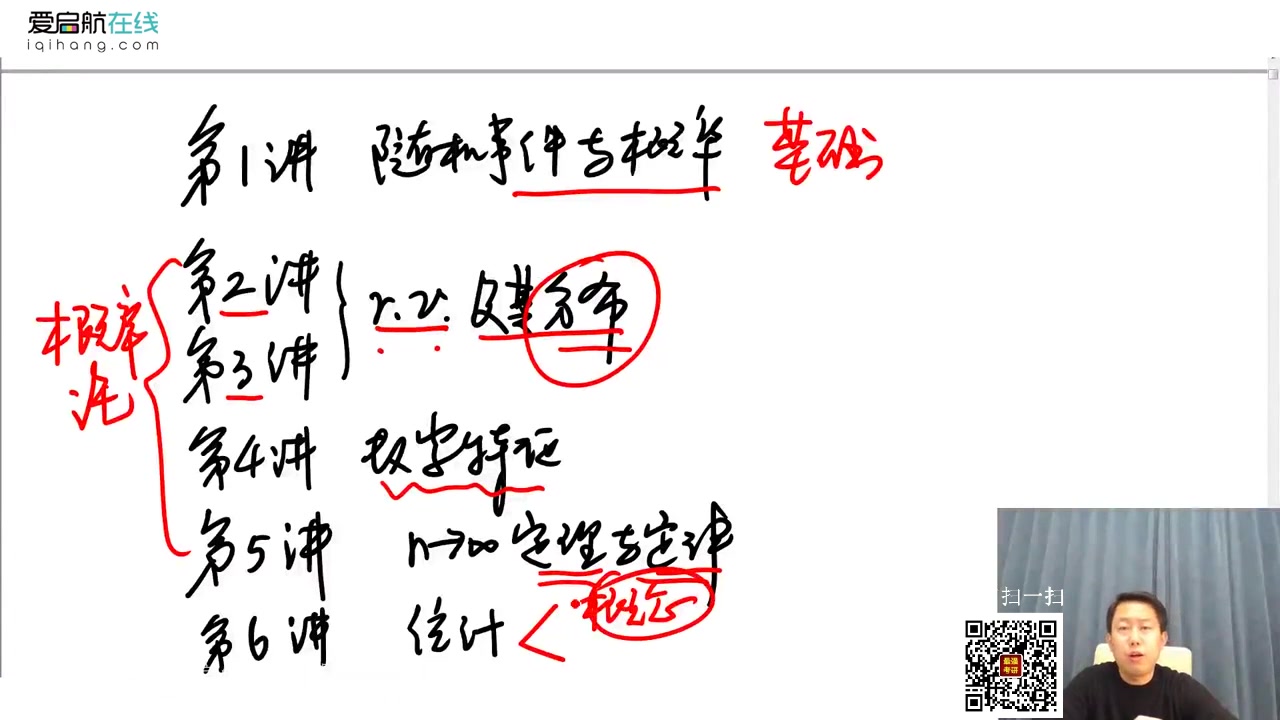 爱启航在线
iqihang.com
第1讲 随机事件与概率 基础
第2讲
第3讲
r.v. 及其分布
概率论
第4讲 数字特征
第5讲 n→∞ 定理与定律
第6讲 统计 概念
扫一扫
最强考研